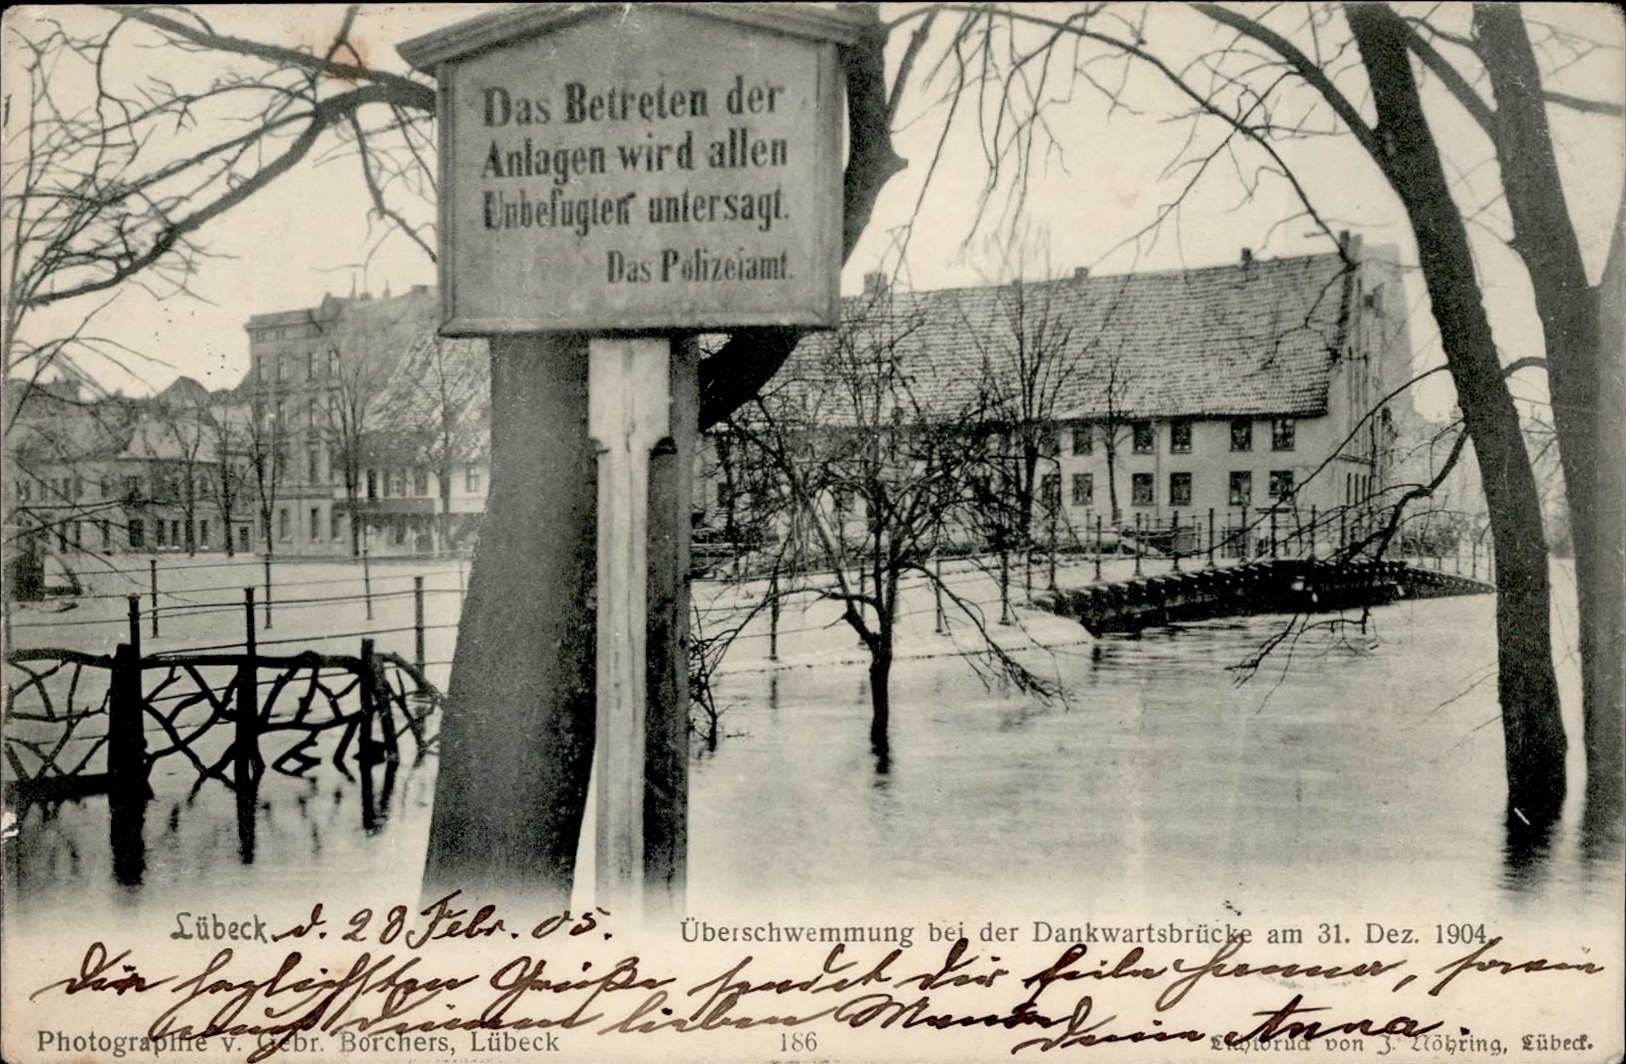 Das Betreten der
Anlagen wird allen
Unbefugten untersagt.
Das Polizeiamt.
Lübeck, d. 28 Febr. 05.
Überschwemmung bei der Dankwartsbrücke am 31. Dez. 1904.
Die herzlichsten Grüße sendet dir
auch deinen lieben
deine Anna.
Photographie v. Gebr. Borchers, Lübeck
186
Lichtdruck von J. Nöhring, Lübeck.